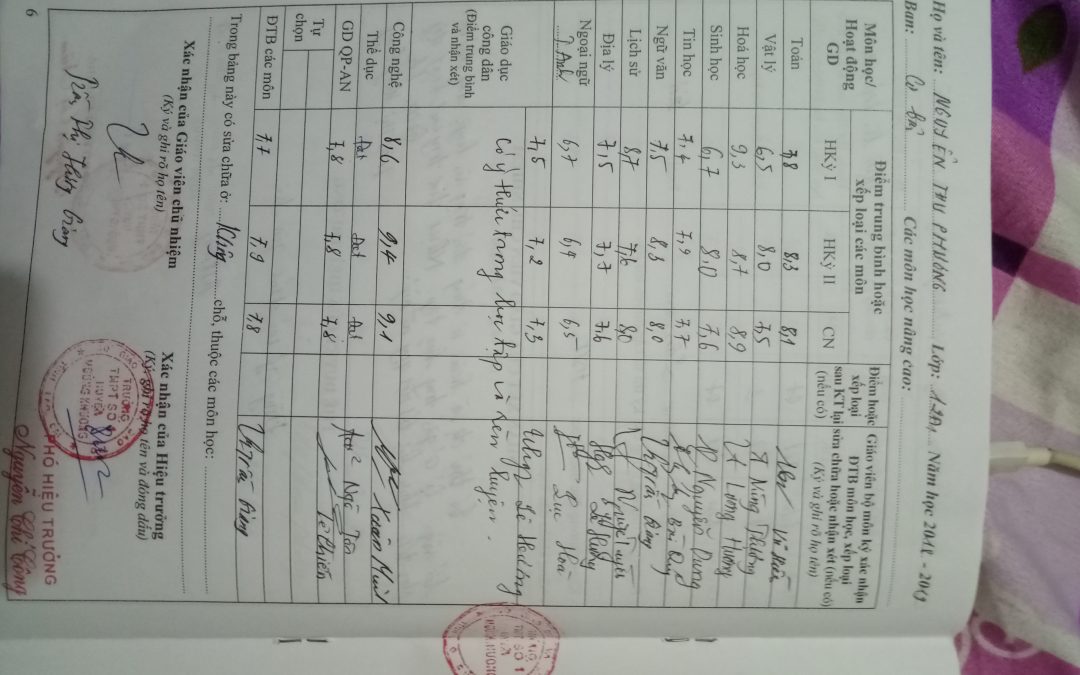 Họ và tên: NGUYỄN THU PHƯƠNG Lớp: 12A1 Năm học 2018 - 2019
Ban: Cơ bản Các môn học nâng cao:
Môn học/ Hoạt động GD
Điểm trung bình hoặc xếp loại các môn
Điểm hoặc xếp loại sau KT lại (nếu có)
Giáo viên bộ môn ký xác nhận ĐTB môn học, xếp loại sửa chữa hoặc nhận xét (nếu có) (Ký và ghi rõ họ tên)
HKỳ I HKỳ II CN
Toán 7,8 8,3 8,1
Vật lý 6,5 8,0 7,5 Nùng Thương
Hoá học 9,3 8,7 8,9 Lương Hương
Sinh học 6,7 8,0 7,6 Nguyễn Dung
Tin học 7,4 7,9 7,7
Ngữ văn 7,5 8,3 8,0
Lịch sử 8,7 7,6 8,0
Địa lý 7,5 7,7 7,6
Ngoại ngữ T. Anh 6,7 6,4 6,5 Lục Hoà
Giáo dục công dân (Điểm trung bình và nhận xét) 7,5 7,2 7,3
Có ý thức trong học tập và rèn luyện.
Công nghệ 8,6 9,4 9,1
Thể dục Đạt Đạt Đạt
GD QP-AN 7,8 7,8 7,8
Tự chọn
ĐTB các môn 7,7 7,9 7,8
Trong bảng này có sửa chữa ở: Không chỗ, thuộc các môn học:
Xác nhận của Giáo viên chủ nhiệm
(Ký và ghi rõ họ tên)
Xác nhận của Hiệu trưởng
(Ký, ghi rõ họ tên và đóng dấu)
TRƯỜNG
THPT SỐ 1
HUYỆN
MƯỜNG KHƯƠNG
PHÓ HIỆU TRƯỞNG
Nguyễn Chí Công
6